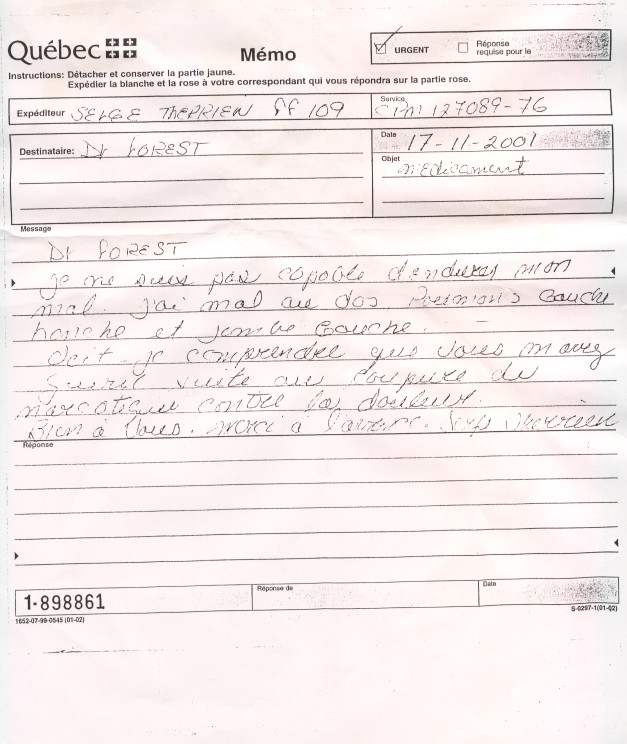 Québec
Mémo
URGENT
Réponse requise pour le
Instructions: Détacher et conserver la partie jaune.
Expédier la blanche et la rose à votre correspondant qui vous répondra sur la partie rose.
Expéditeur SERGE THERRIEN FF 109
Service CIM 127089-76
Destinataire: Dr FOREST
Date 17-11-2001
Objet
médicament
Message
Dr FOREST
je ne suis pas capable d'endurer mon
mal. J'ai mal au dos Poumons Gauche
hanche et jambe Gauche.
Doit-je comprendre que vous m'avez
suite au coupure de
narcotique contre la douleur.
Bien à Vous. merci à l'avance. Serge Therrien
Réponse
1-898861
Réponse de
Date
1652-07-99-0545 (01-02)
S-0297-1(01-02)